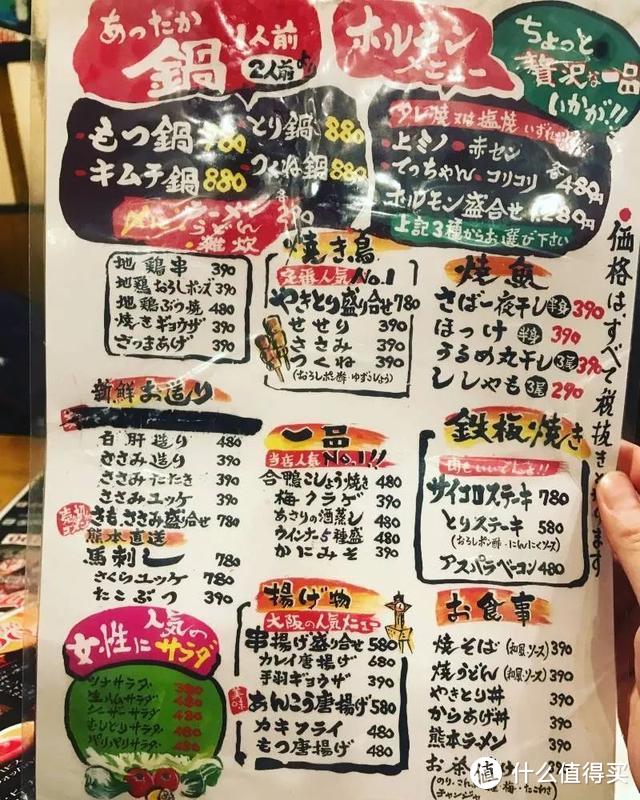 あったか
鍋
1人前
2人前より
ホルモン
メニュー
ちょっと
贅沢な一品
いかが!!
・もつ鍋 780
・とり鍋 880
・キムチ鍋 880
・つくね鍋 880
〆に ラーメン
うどん
雑炊
各 290
タレ焼又は塩焼
・上ミノ ・赤セン
・てっちゃん ・コリコリ
各480円
ホルモン盛合せ 1,280円
上記3種からお選び下さい
・価格はすべて税抜きとなります
地鶏串 390
地鶏おろしポンズ 390
地鶏ぶつ焼 480
焼きギョウザ 390
さつまあげ 390
焼き鳥
定番人気No.1
やきとり盛り合せ 780
せせり 390
ささみ 390
つくね 390
(おろしポン酢・ゆずこしょう)
焼魚
さば一夜干し 半身 390
ほっけ 半身 390
うるめ丸干し 3尾 390
ししゃも 3尾 290
新鮮お造り
白肝造り 480
ささみ造り 390
ささみたたき 390
ささみユッケ 390
きもささみ盛合せ 780
熊本直送
馬刺し 780
さくらユッケ 780
たこぶつ 390
一品
当店人気No.1!!
合鴨こしょう焼き 480
梅クラゲ 390
あさりの酒蒸し 480
ウインナー5種盛 480
かにみそ 390
鉄板焼き
肉もいいでんな!!
サイコロステーキ 780
とりステーキ 580
(おろしポン酢・にんにくソース)
アスパラベーコン 480
人気の
女性に サラダ
ツナサラダ 380
生ハムサラダ 480
シーザーサラダ 480
むしどりサラダ 480
パリパリサラダ 480
揚げ物
大阪の人気メニュー
串揚げ盛り合せ 580
カレイ唐揚げ 680
手羽ギョウザ 390
美味
あんこう唐揚げ 580
カキフライ 480
もつ唐揚げ 480
お食事
焼そば (和風、ソース) 390
焼うどん (和風、ソース) 390
やきとり丼 390
からあげ丼 390
熊本ラーメン 390
お茶 け 390
梅・たこわさ
チャンジャ
值 什么值得买